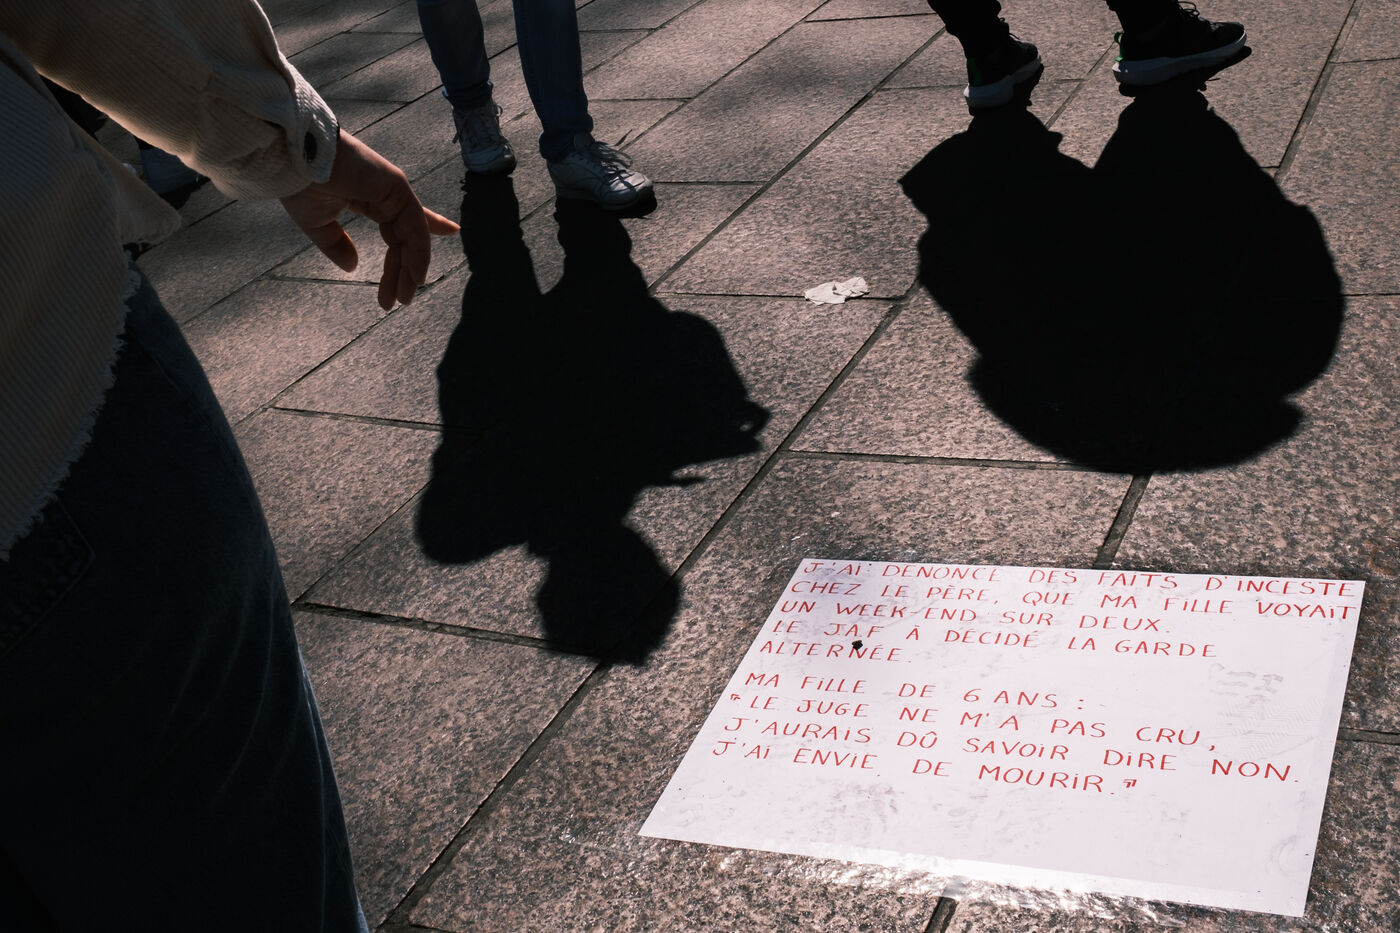 J'AI DENONCÉ DES FAITS D'INCESTE
CHEZ LE PÈRE, QUE MA FILLE VOYAIT
UN WEEK-END SUR DEUX.
LE JAF À DÉCIDÉ LA GARDE
ALTERNÉE.
MA FILLE DE 6 ANS :
"LE JUGE NE M'A PAS CRU,
J'AURAIS DÛ SAVOIR DIRE NON.
J'AI ENVIE DE MOURIR."